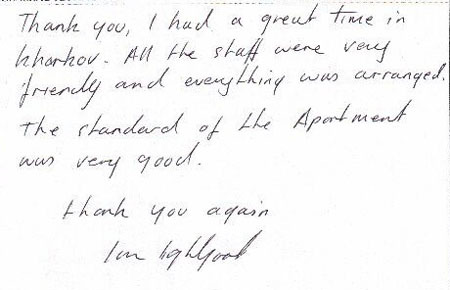 Thank you, I had a great time in
Kharkov. All the staff were very
friendly and everything was arranged.
The standard of the Apartment
was very good.
thank you again
Ian